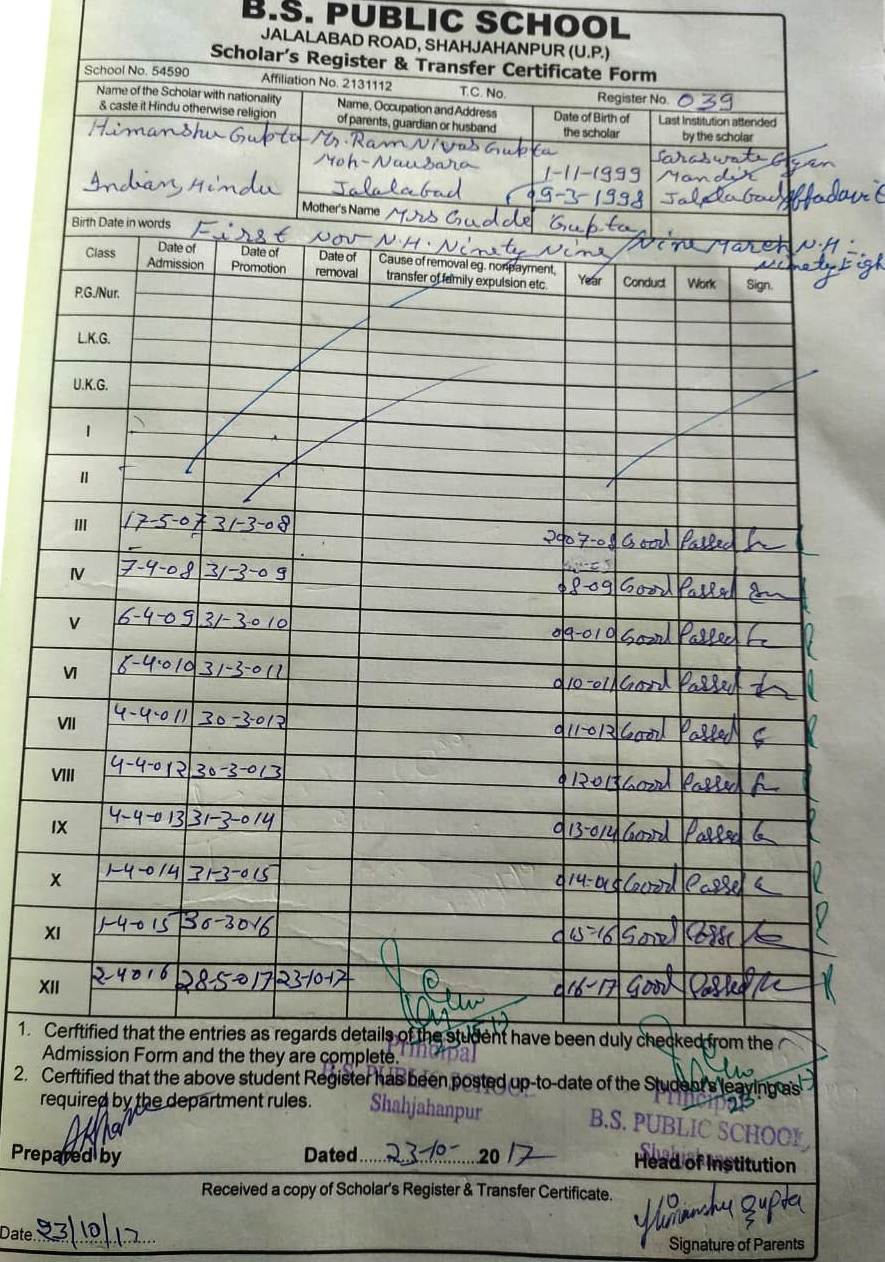 B.S. PUBLIC SCHOOL
JALALABAD ROAD, SHAHJAHANPUR (U.P.)
Scholar's Register & Transfer Certificate Form
School No. 54590 Affiliation No. 2131112 T.C. No. Register No. 039
Name of the Scholar with nationality & caste it Hindu otherwise religion
Name, Occupation and Address of parents, guardian or husband
Date of Birth of the scholar
Last Institution attended by the scholar
Himanshu Gupta Mr. Ram Nivas Gupta Saraswate Gyan
Moh- Nausara 1-11-1999 Mandir
Indian, Hindu Jalalabad 09-3-1998 Jalalabad Affadavit
Mother's Name Mrs Gudde Gupta
Birth Date in words First Nov N.H. Ninety Nine / Nine March N.H -
Ninety Eigh
Class Date of Admission Date of Promotion Date of removal Cause of removal eg. nonpayment, transfer of family expulsion etc. Year Conduct Work Sign.
P.G./Nur.
L.K.G.
U.K.G.
I
II
III 17-5-07 31-3-08 2007-08 Good Passed
IV 7-4-08 31-3-09 08-09 Good Passed
V 6-4-09 31-3-010 09-010 Good Passed
VI 6-4-010 31-3-011 010-011 Good Passed
VII 4-4-011 30-3-012 011-012 Good Passed
VIII 4-4-012 30-3-013 012-013 Good Passed
IX 4-4-013 31-3-014 013-014 Good Passed
X 1-4-014 31-3-015 014-015 Good Passed
XI 1-4-015 30-3016 015-16 Good
XII 2-4016 28-5-017 23-10-17 016-17 Good Passed
1. Cerftified that the entries as regards details of the student have been duly checked from the
Admission Form and the they are complete.
Principal
2. Cerftified that the above student Register has been posted up-to-date of the Student's leaying as
required by the department rules.
B.S. PUBLIC SCHOOL
Shahjahanpur
Principal
B.S. PUBLIC SCHOOL
Prepared by Dated.....23-10-.....2017 Head of Institution
Received a copy of Scholar's Register & Transfer Certificate.
Himanshu Gupta
Date..23/10/17.... Signature of Parents